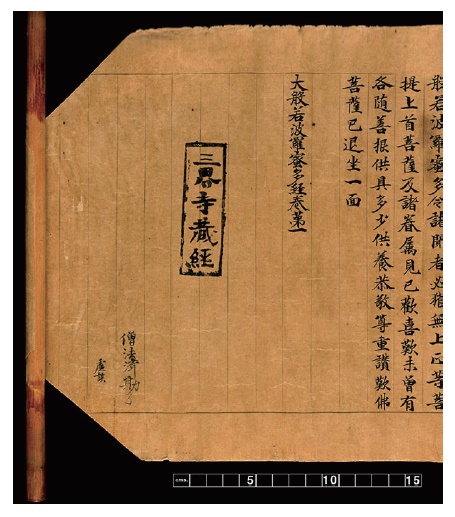 般若波羅蜜多令諸聞者必獲無上正等菩
提上首菩薩及諸眷屬見已歡喜歎未曾有
各隨善根供具多少供養恭敬尊重讚歎佛
菩薩已退坐一面
大般若波羅蜜多經卷第一
三界寺藏經
僧法濟勘了
cms. 5 10 15